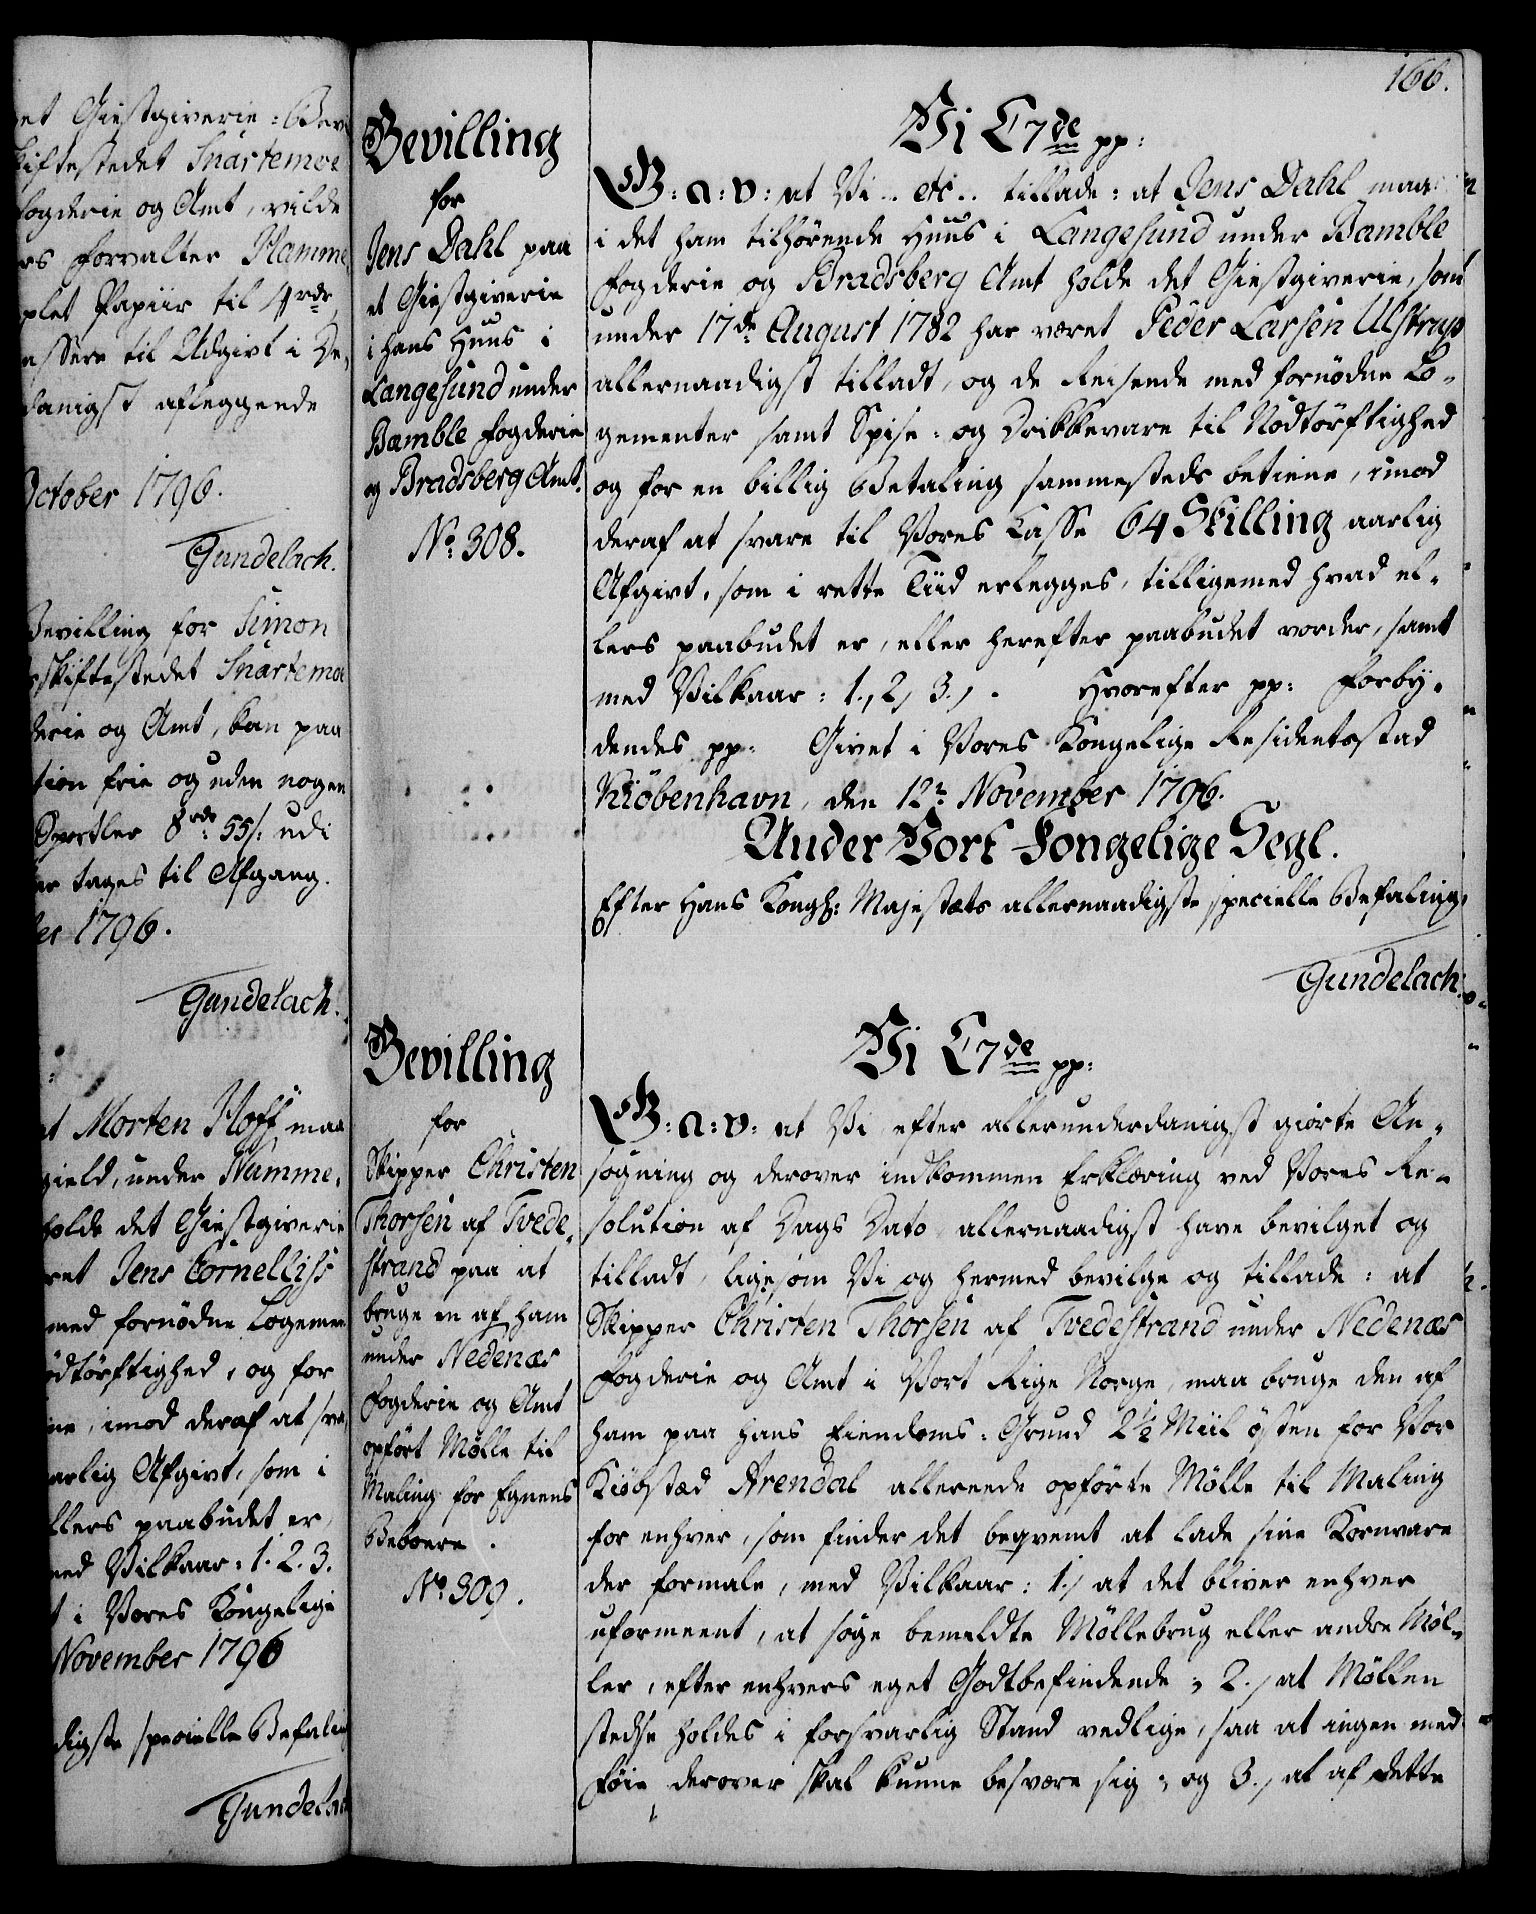 et Giestgiverie-Bev
skiftestedet Snartemoe
Fogderie og Amt, vilde
rs Forvalter Hamme,
plet Papiir til 4 rdr
assere til Udgivt i De,
danigst aflæggende
October 1796.
Gundelach.
Bevilling for Simon
skiftestedet Snartemoe
derie og Amt, kan paa
tion frie og uden nogen
Sportler 8 rdr 55 s: udi
er tages til Afgang.
er 1796.
Gundelach.
at Morten Hoff, maa
gield, under Namme,
holde det Giestgiverie
ret Jens Cornelliss
med fornødne Logemen
ødtørftighed, og for
ne, imod deraf at sva,
arlig Afgivt, som i
llers paabudet er,
med Vilkaar: 1. 2. 3.
t i Vores Kongelige
November 1796
digste specielle Befaling
Gundelach
Bevilling
for
Jens Dahl paa
et Giestgiverie
i hans Huus i
Langesund under
Bamble Fogderie
og Bradsberg Amt.
No. 308.
Bevilling
for
Skipper Christen
Thorsen af Tvede,
strand paa at
bruge en af ham
under Nedenæs
Fogderie og Amt
opført Mølle til
Maling for Egnens
Beboere.
No. 309.
166.
Vi C7de pp:
G: a: v: at Vi .. etc .. tillade: at Jens Dahl maa
i det ham tilhørende Huus i Langesund under Bamble
Fogderie og Bradsberg Amt holde det Giestgiverie, som
under 17de August 1782 har været Peder Larsen Ulstrup
allernaadigst tilladt, og de Reisende med fornødne Lo-
gementer samt Spise- og Drikkevare til Nödtörftighed
og for en billig Betaling sammesteds betiene, imod
deraf at svare til Vores Casse 64 Skilling aarlig
Afgivt, som i rette Tiid erlegges, tilligemed hvad el-
lers paabudet er, eller herefter paabudet vorder, samt
med Vilkaar: 1., 2, 3., . Hvorefter pp: Forby-
dendes pp: Givet i Vores Kongelige Residentsstad
Kiöbenhavn, den 12te November 1796.
Under Vort Kongelige Segl.
Efter Hans Kongl: Majestæts allernaadigste specielle Befaling,
Gundelach.
Vi C7de pp:
G: a: v: at Vi efter allerunderdanigst giorte An-
søgning og derover indkommen Erklæring ved Vores Re-
solution af Dags Dato allernaadigst have bevilget og
tilladt, ligesom Vi og hermed bevilge og tillade: at
Skipper Christen Thorsen af Tvedestrand under Nedenæs
Fogderie og Amt i Vort Rige Norge, maa bruge den af
ham paa hans Eiendoms-Grund 2½ Miil østen for Vor
Kiöbstæd Arendal allerede opførte Mölle til Maling
for enhver, som finder det beqvemt at lade sine Kornvare
der formale, med Vilkaar: 1., at det bliver enhver
uformeent, at søge bemeldte Möllebrug eller andre Möl-
ler, efter enhvers eget Godtbefindende; 2., at Möllen
stedse holdes i forsvarlig Stand vedlige, saa at ingen med
Føie derover skal kunne besvære sig; og 3., at af dette